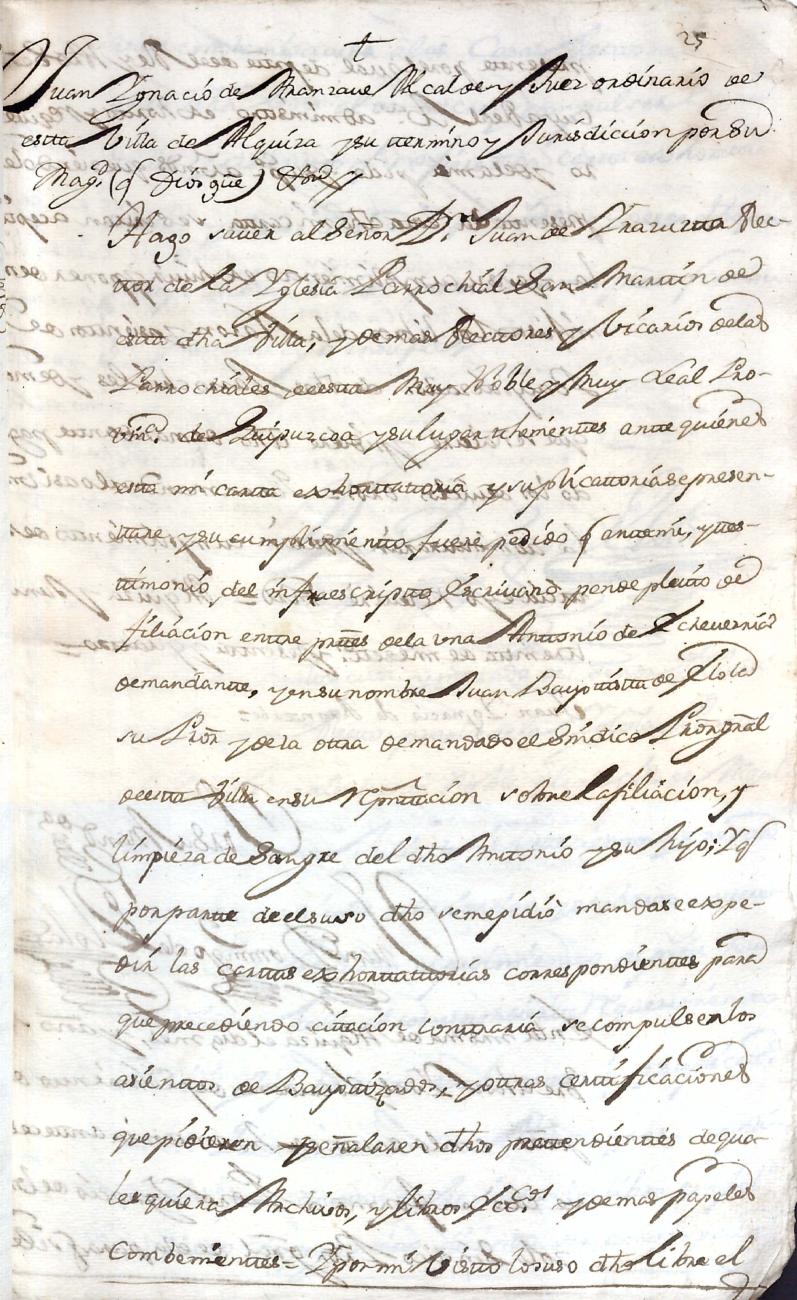 25
†
Juan Ygnacio de Aranzave Alcalde y Juez ordinario de
estta Villa de Alquiza y su ttermino y Jurisdiccion por Su
Magd. (q Dios gue)
Hago saver al Señor Dn. Juan de Yrazuztta Rec-
ttor de la Yglesia Parrochial San Marttin de
estta dha Villa, y demás Rectores y Vicarios de las
Parrochiales de estta Muy Noble y Muy Leal Pro-
vinca. de Guipuzcoa y sus lugar tthenienttes antte quienes
estta mi cartta exhorttattoria y suplicattoria se presen-
ttare y su cumplimientto fuere pedido q antte mi, y ttes-
ttimonio del infraescriptto Escrivano pende pleitto de
filiacion enttre parttes de la una Anttonio de Echeverria
demandantte, y en su nombre Juan Bapttistta de Elola
su Pror y de la ottra demandado el Sindico Pror gral
de estta Villa en su Representtacion sobre la filiacion, y
limpieza de Sangre del dho Anttonio y su hijo; Y q
por partte de el suso dho se me pidió mandase expe-
dir las carttas exhorttattorias correspondienttes para
que precediendo cittacion conttraria se compulsen los
asienttos de Bapttizados, y ottras certtificaciones
que pidieren y señalaren dhos prettendienttes de qua-
lesquiera Archivos, y libros y demas papeles
Combenienttes = Y por mi Vistto lo suso dho libre el